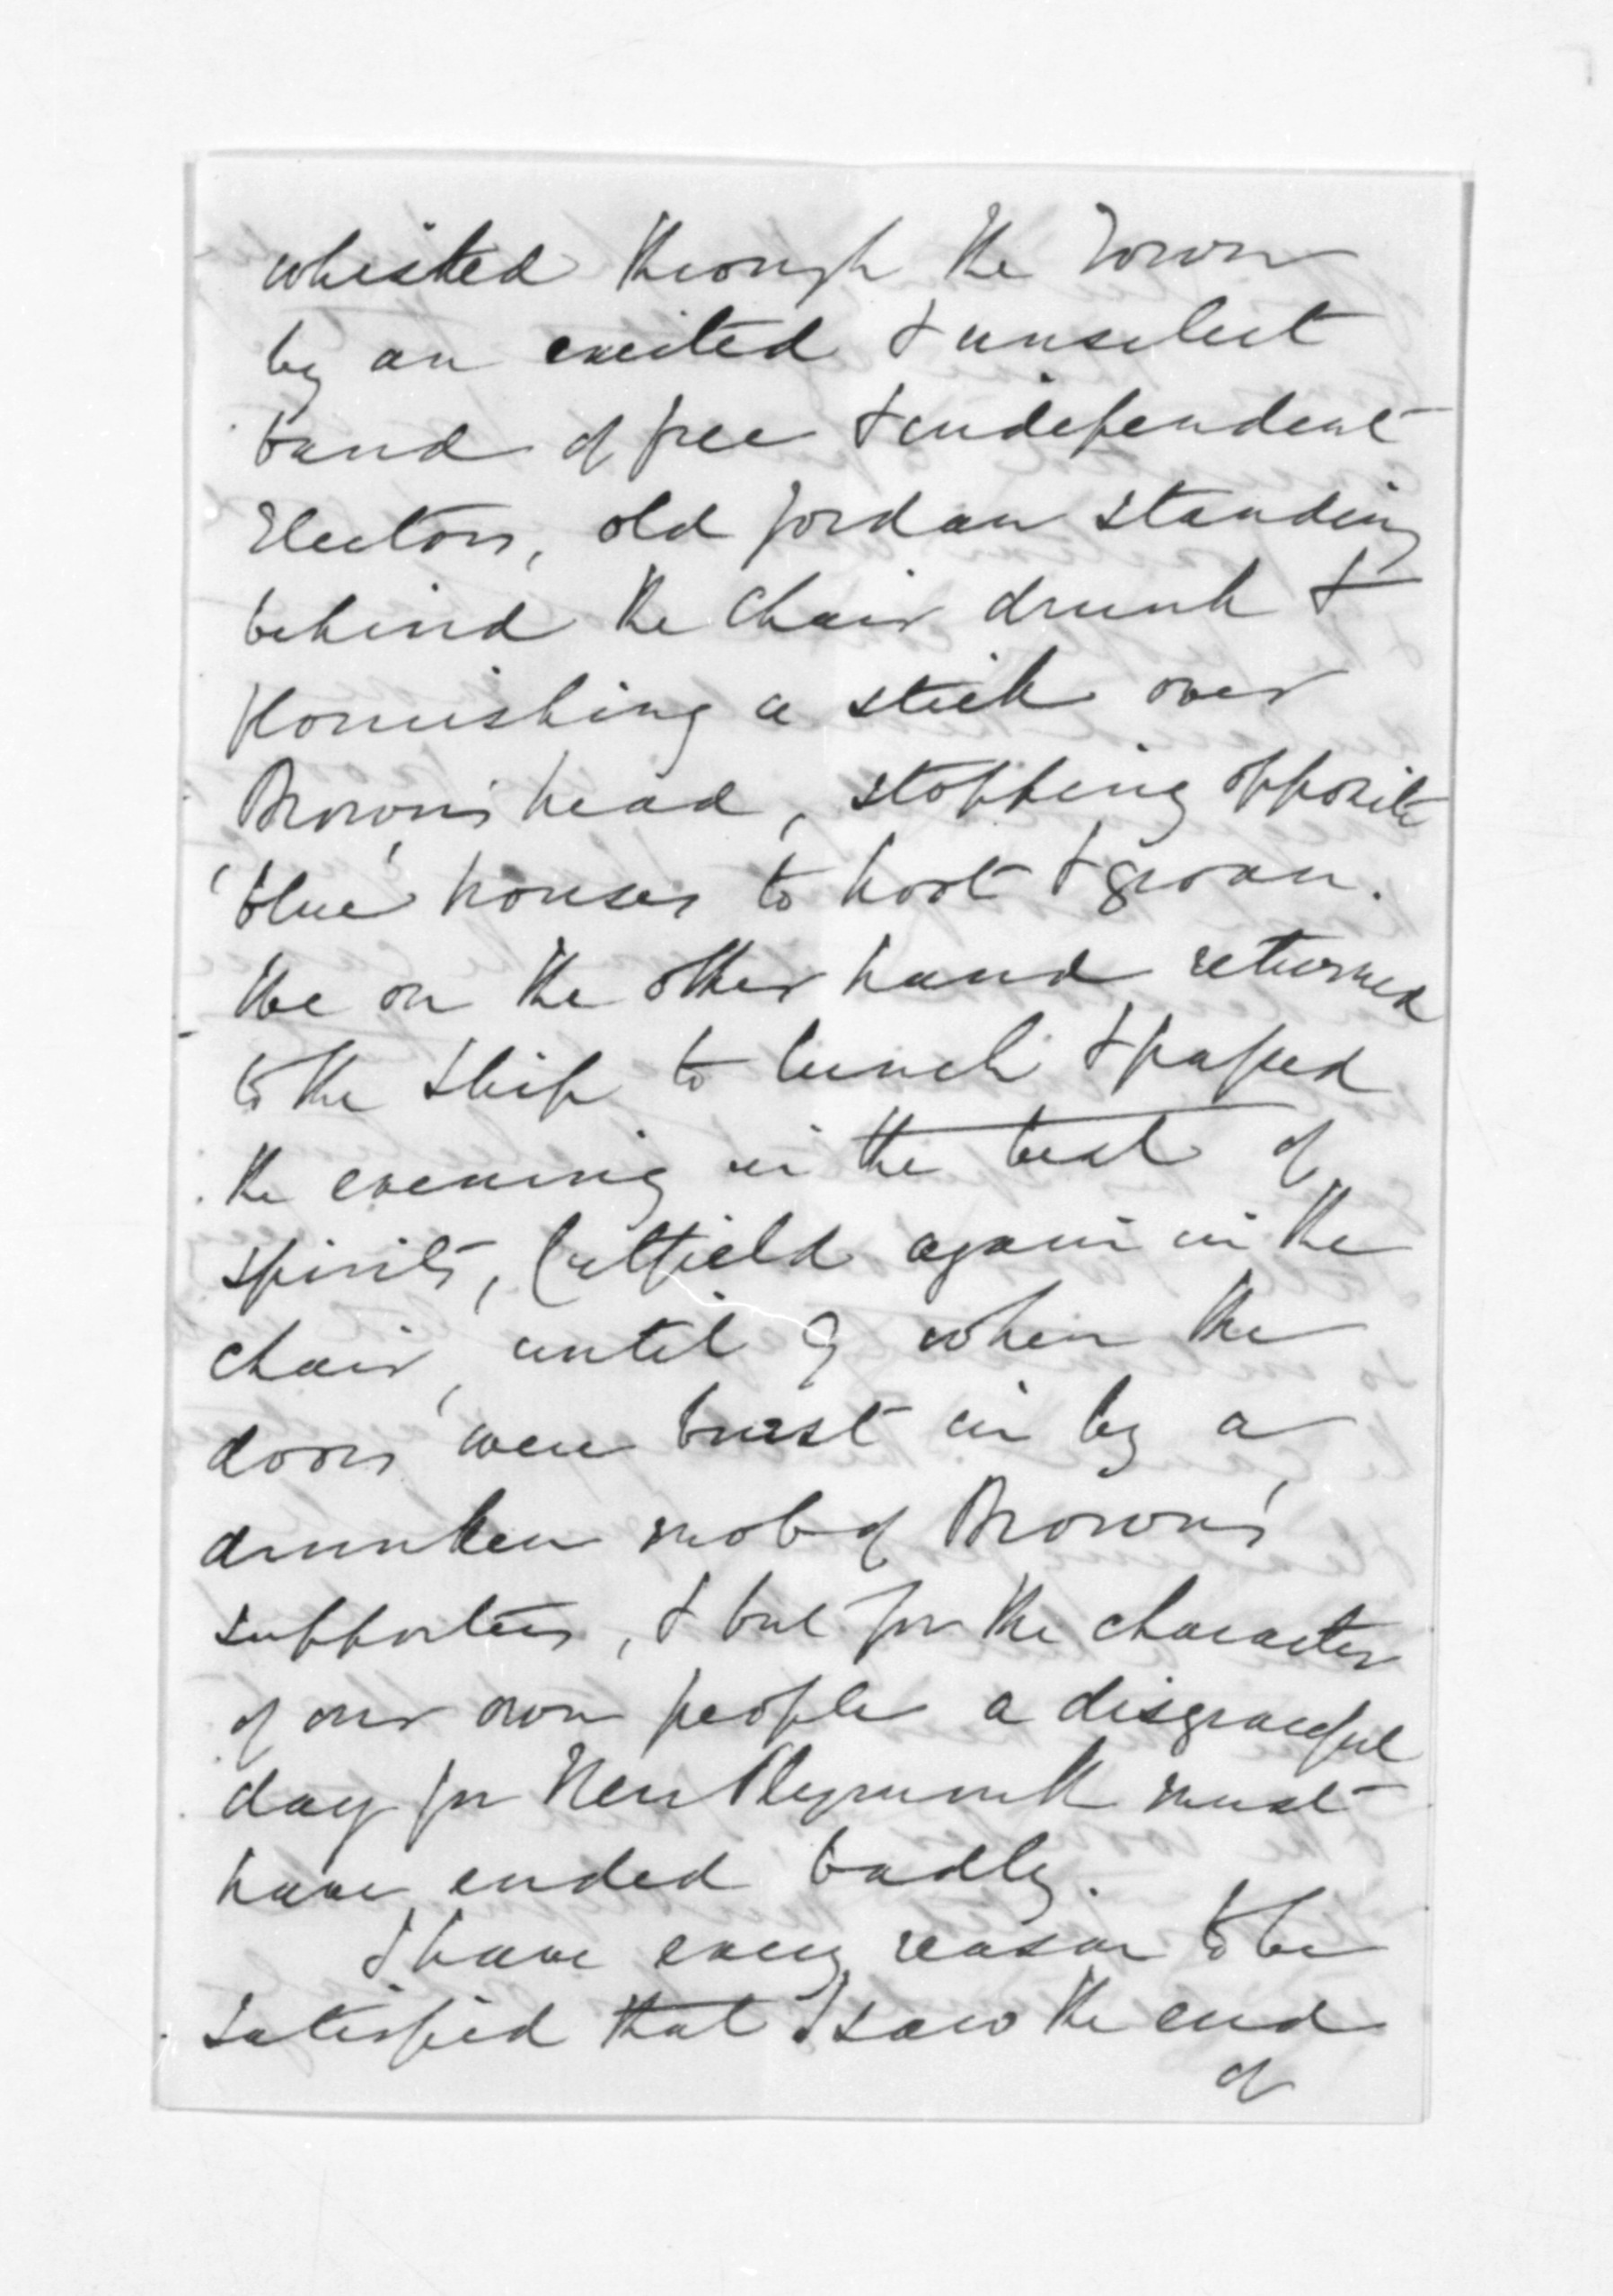 whisked through the Town
by an excited & unselect
band of free & independent
Electors, old Jordan standing
behind the Chair drunk &
flourishing a stick over
Brown's head, stopping opposite
'blue' houses to hoot & groan.
We on the other hand returned
to the Ship to lunch & passed
the evening in the best of
spirits, Cutfield again in the
chair, until 9 when the
doors were burst in by a
drunken mob of Brown's
supporters, & but for the character
of our own people a disgraceful
day for New Plymouth must
have ended badly.
I have every reason to be
satisfied that I saw the end
of